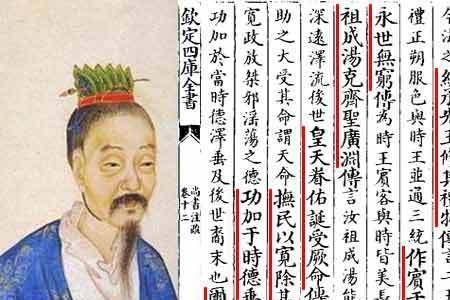 統承先王修其禮物傳言二
禮正朔服色與時王並通三統作賓于
永世無窮傳為時王賓客與時皆美長
祖成湯克齊聖廣淵傳言汝祖成湯能
深遠澤流後世皇天眷佑誕受厥命傳
助之大受其命謂天命撫民以寬除其
寬政放桀邪淫蕩之德功加于時德垂
功加於當時德澤垂及後世裔末也爾
欽定四庫全書
尚書注疏
卷十二